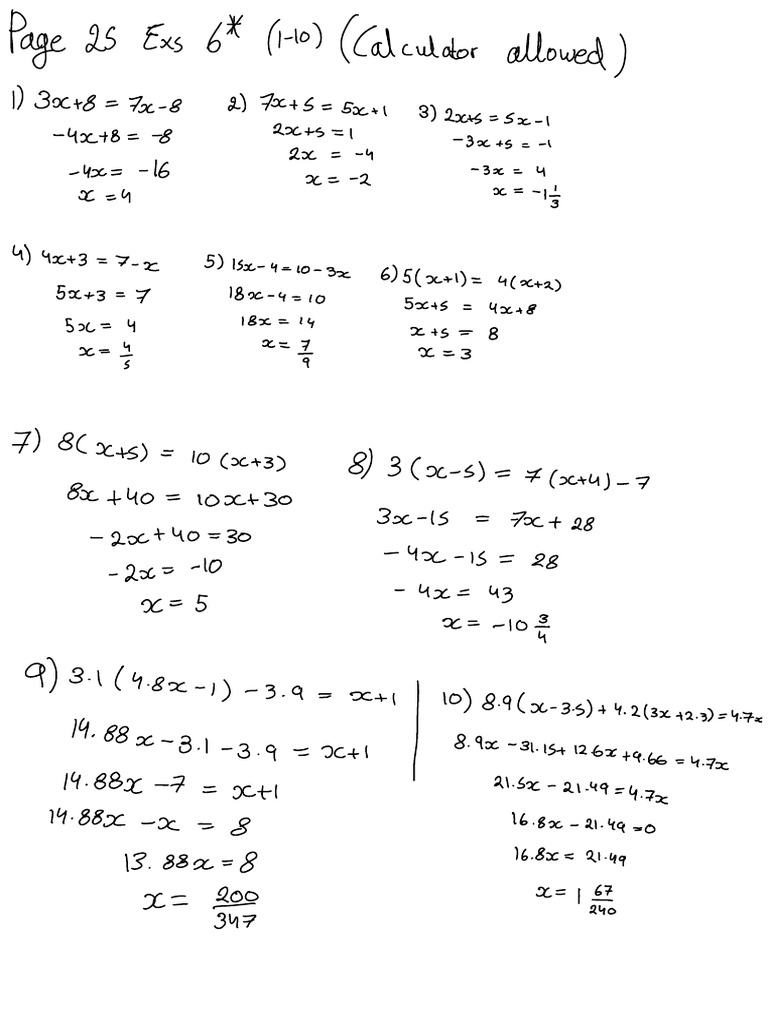 Page 25 Exs 6* (1-10) (Calculator allowed)
1) 3x+8 = 7x-8
-4x+8 = -8
-4x = -16
x = 4
2) 7x+5 = 5x+1
2x+5 = 1
2x = -4
x = -2
3) 2x+5 = 5x-1
-3x+5 = -1
-3x = 4
x = -1 1/3
4) 4x+3 = 7-x
5x+3 = 7
5x = 4
x = 4/5
5) 15x-4 = 10-3x
18x-4 = 10
18x = 14
x = 7/9
6) 5(x+1) = 4(x+2)
5x+5 = 4x+8
x+5 = 8
x = 3
7) 8(x+5) = 10(x+3)
8x+40 = 10x+30
-2x+40 = 30
-2x = -10
x = 5
8) 3(x-5) = 7(x+4)-7
3x-15 = 7x+28
-4x-15 = 28
-4x = 43
x = -10 3/4
9) 3.1(4.8x-1) - 3.9 = x+1
14.88x-3.1-3.9 = x+1
14.88x-7 = x+1
14.88x-x = 8
13.88x = 8
x = 200/347
10) 8.9(x-3.5) + 4.2(3x+2.3) = 4.7x
8.9x-31.15+12.6x+9.66 = 4.7x
21.5x-21.49 = 4.7x
16.8x-21.49 = 0
16.8x = 21.49
x = 1 67/240